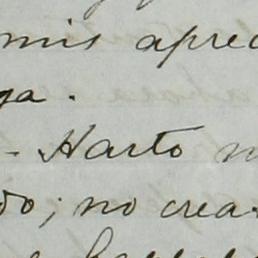 mis apre
ga.
- Harto
do; no crea